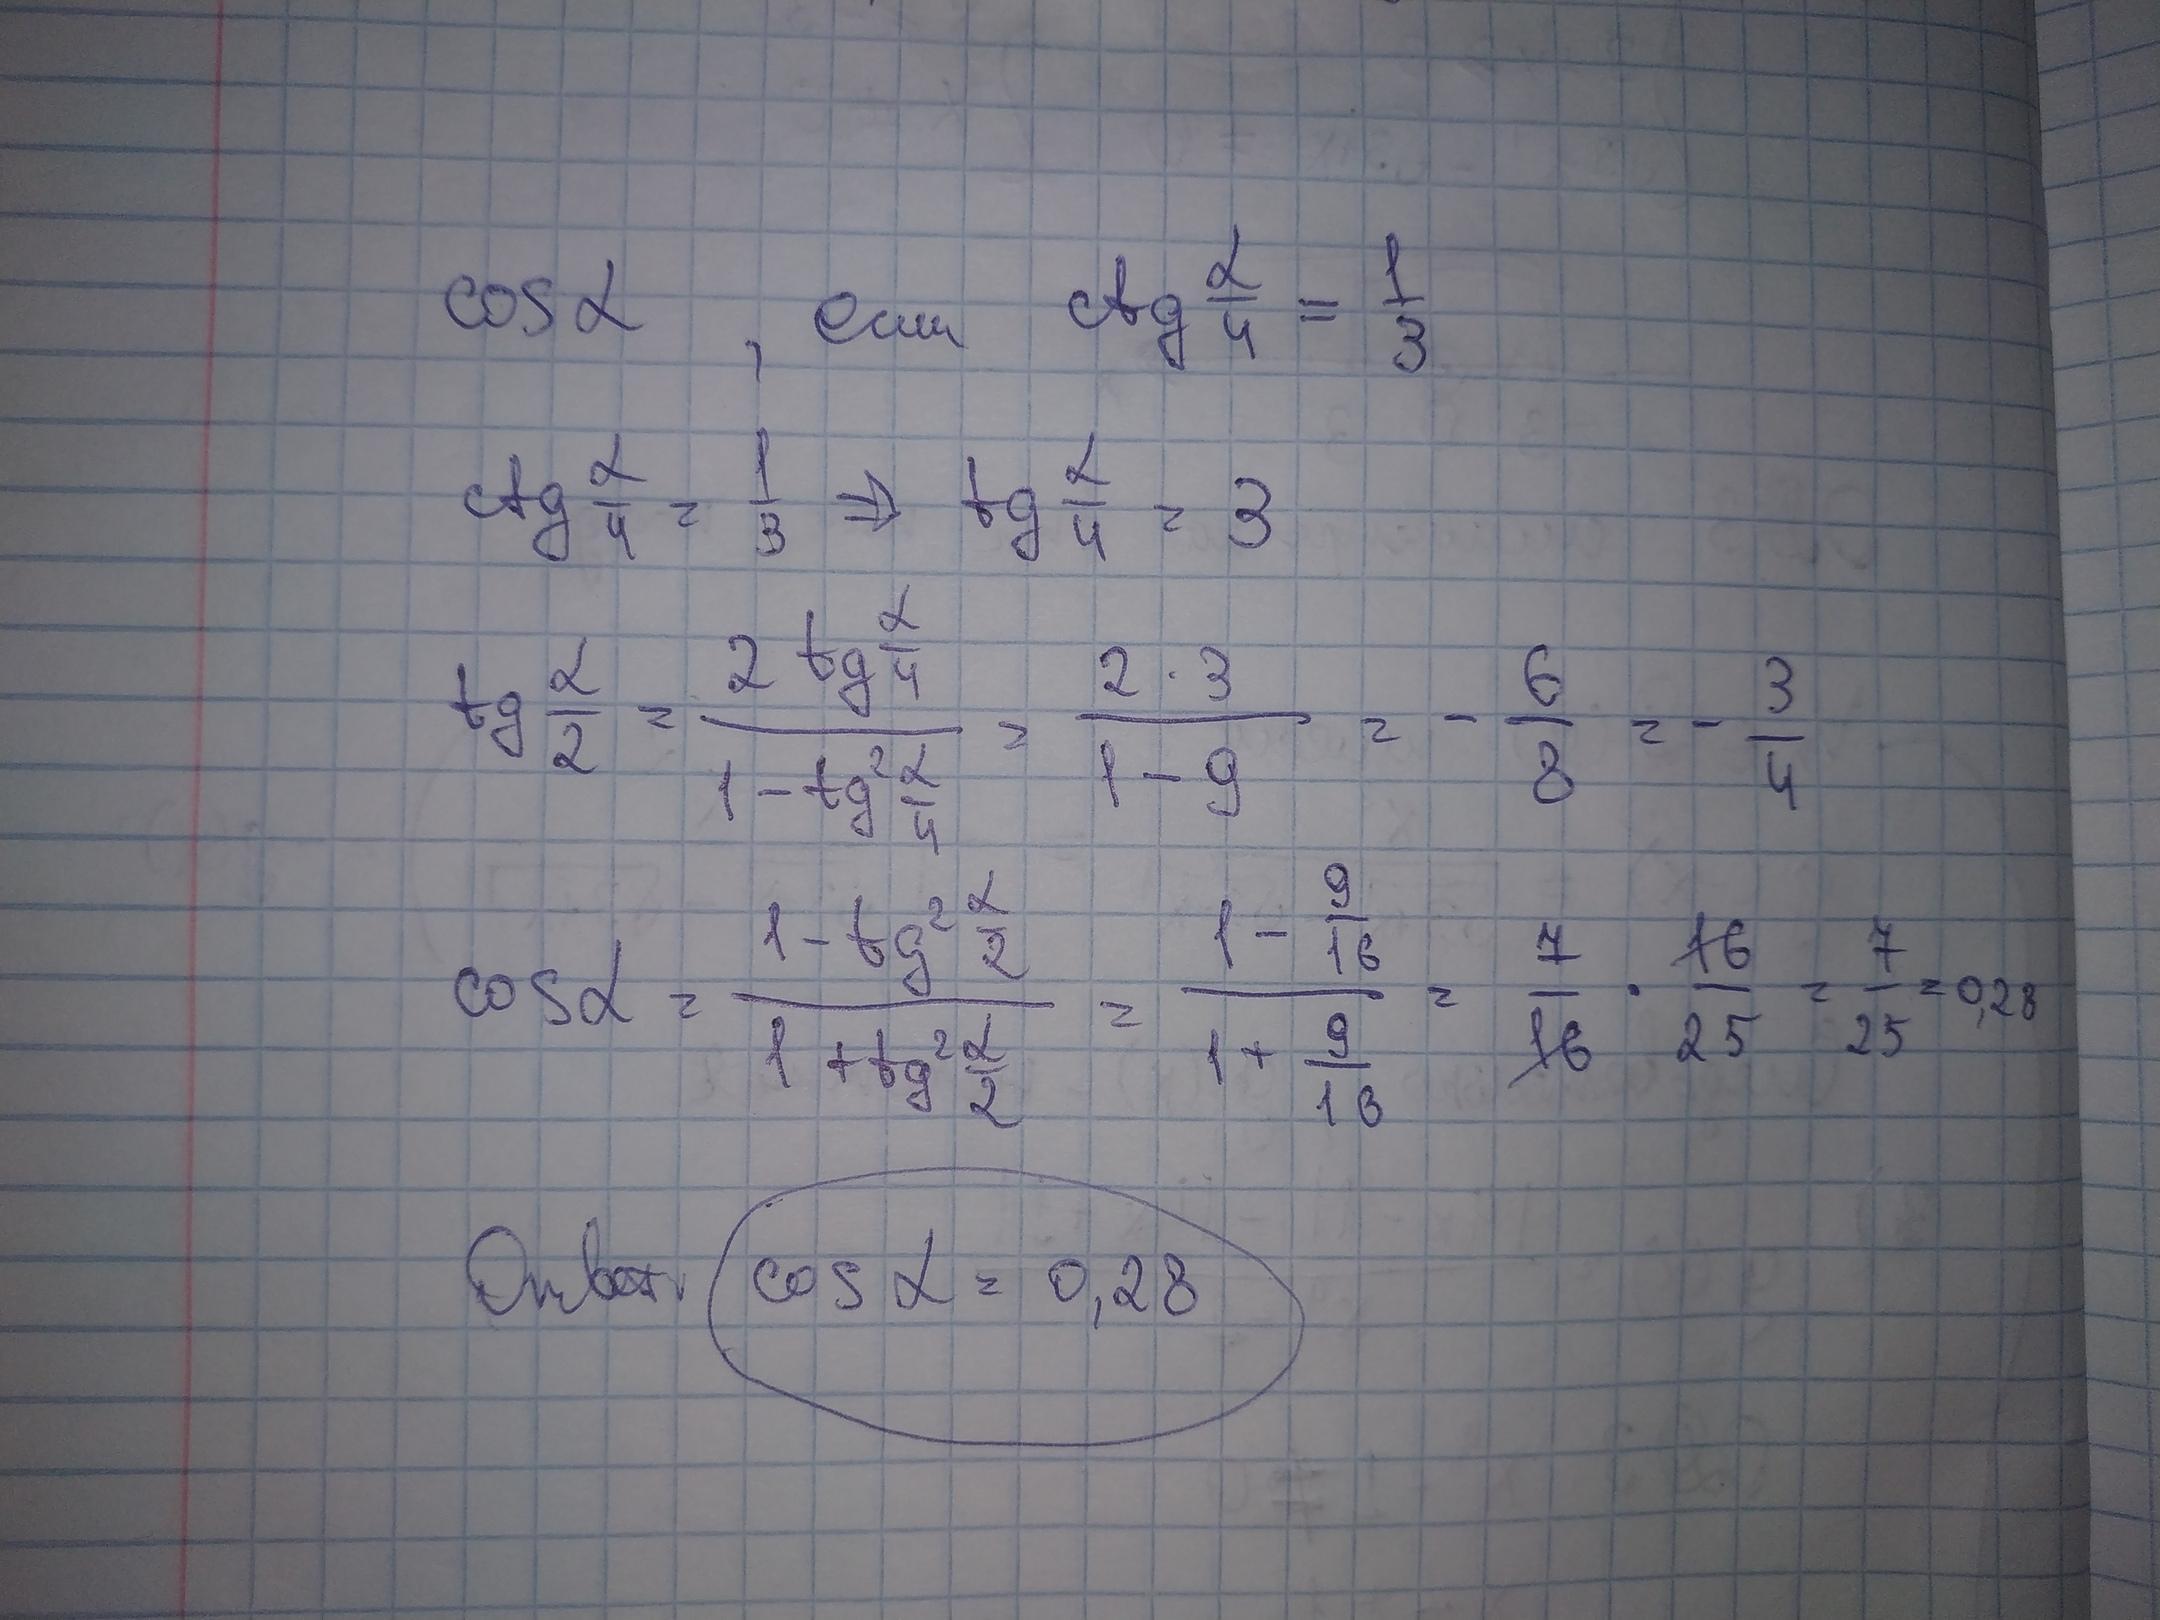 cos α, если ctg α/4 = 1/3
ctg α/4 = 1/3 ⇒ tg α/4 = 3
tg α/2 = (2 tg α/4)/(1 - tg² α/4) = (2 · 3)/(1 - 9) = - 6/8 = - 3/4
cos α = (1 - tg² α/2)/(1 + tg² α/2) = (1 - 9/16)/(1 + 9/16) = 7/16 · 16/25 = 7/25 = 0,28
Ответ: cos α = 0,28